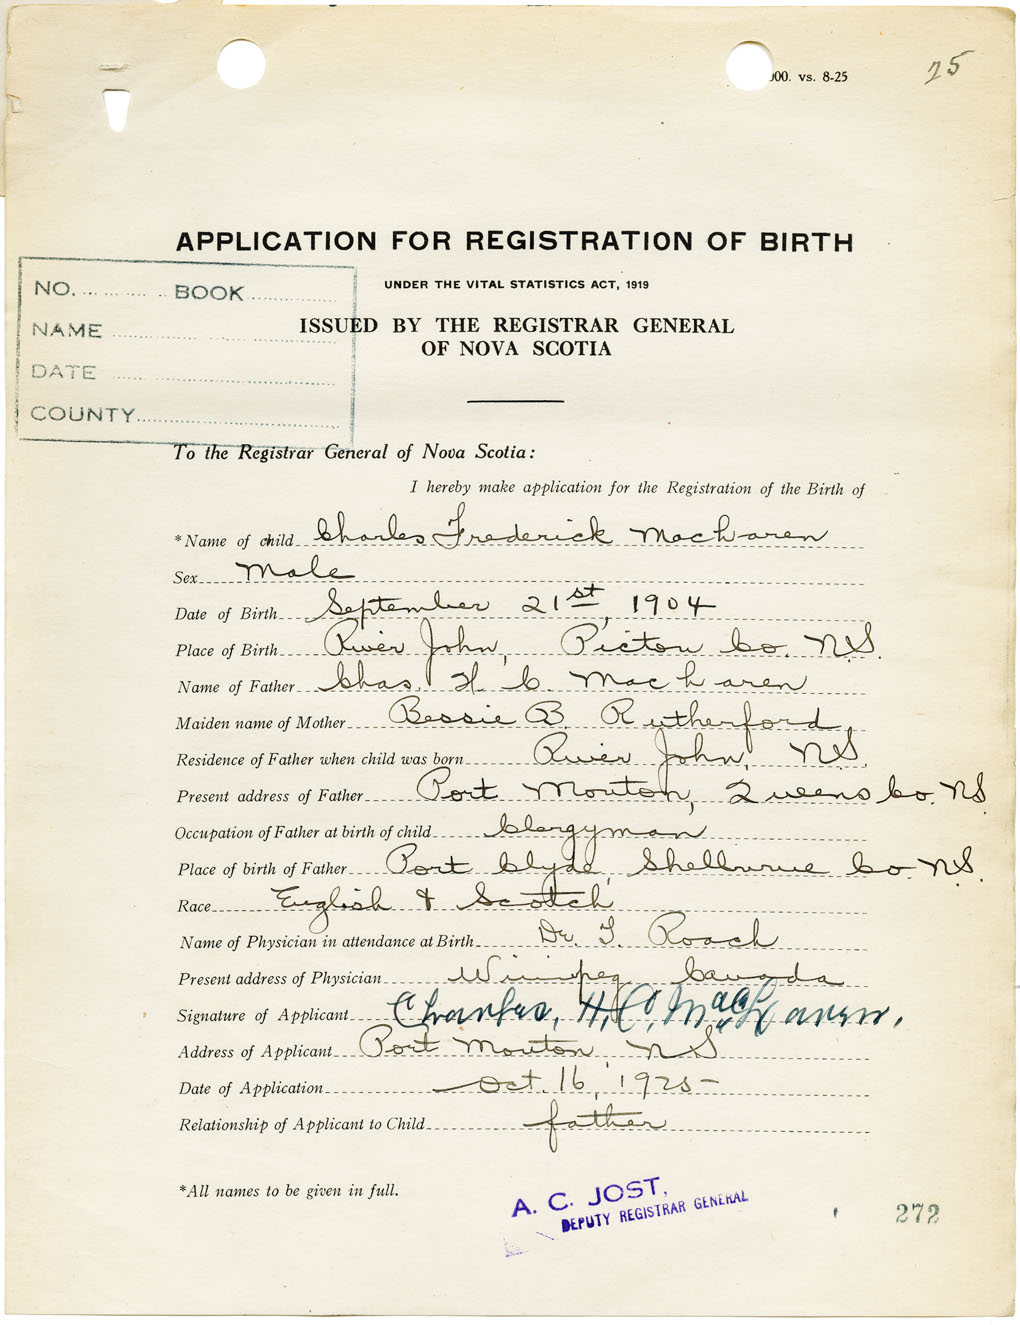 000. vs. 8-25
25
APPLICATION FOR REGISTRATION OF BIRTH
UNDER THE VITAL STATISTICS ACT, 1919
ISSUED BY THE REGISTRAR GENERAL
OF NOVA SCOTIA
NO. BOOK
NAME
DATE
COUNTY
To the Registrar General of Nova Scotia:
I hereby make application for the Registration of the Birth of
*Name of child Charles Frederick MacLaren
Sex Male
Date of Birth September 21st, 1904
Place of Birth River John, Pictou Co. N.S.
Name of Father Chas. H. C. MacLaren
Maiden name of Mother Bessie B. Rutherford
Residence of Father when child was born River John, N.S.
Present address of Father Port Mouton, Queens Co. N.S.
Occupation of Father at birth of child Clergyman
Place of birth of Father Port Clyde, Shelburne Co. N.S.
Race English & Scotch
Name of Physician in attendance at Birth Dr. Roach
Present address of Physician Winnipeg Canada
Signature of Applicant Charles. H. C. MacLaren.
Address of Applicant Port Mouton, N.S.
Date of Application Oct. 16, 1925
Relationship of Applicant to Child father
*All names to be given in full.
A. C. JOST,
DEPUTY REGISTRAR GENERAL
272